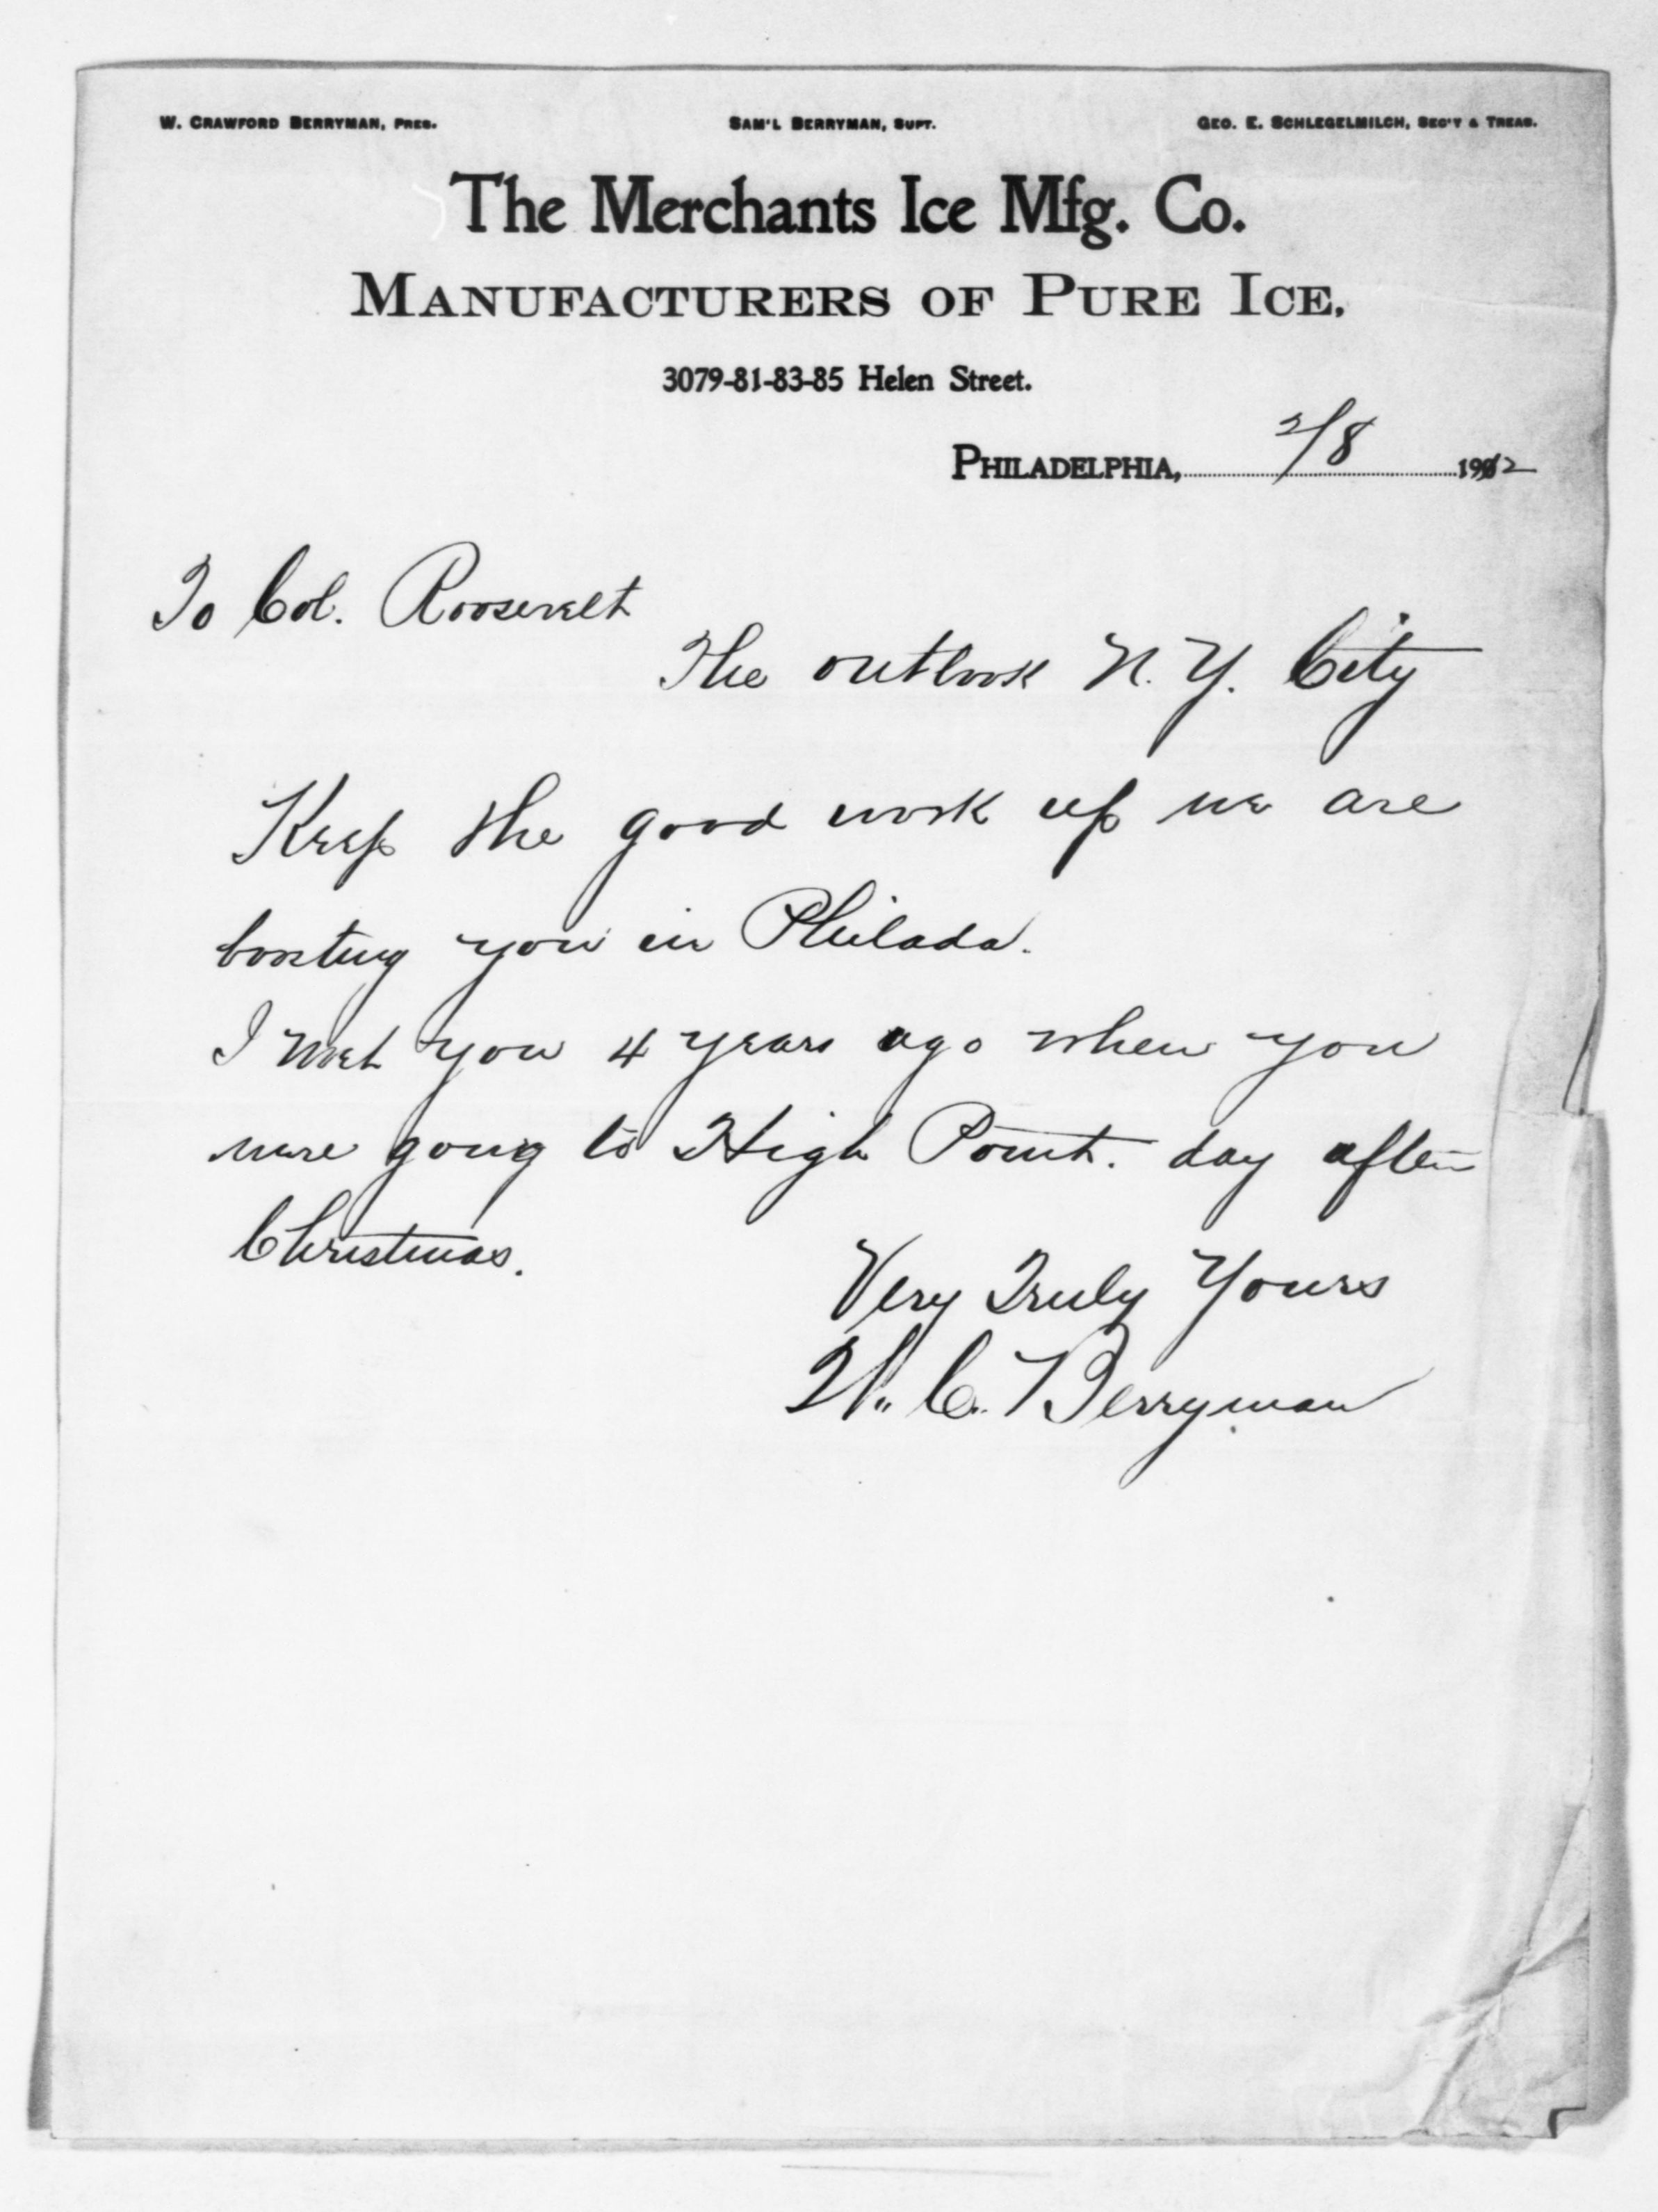 W. Crawford Berryman, Pres. Sam'l Berryman, Supt. Geo. E. Schlegelmilch, Sec'y & Treas.
The Merchants Ice Mfg. Co.
Manufacturers of Pure Ice.
3079-81-83-85 Helen Street.
Philadelphia, 2/8 1912
To Col. Roosevelt
The outlook N. Y. City
Keep the good work up we are
boosting you in Philada.
I met you 4 years ago when you
were going to High Point. day after
Christmas.
Very Truly Yours
W. C. Berryman